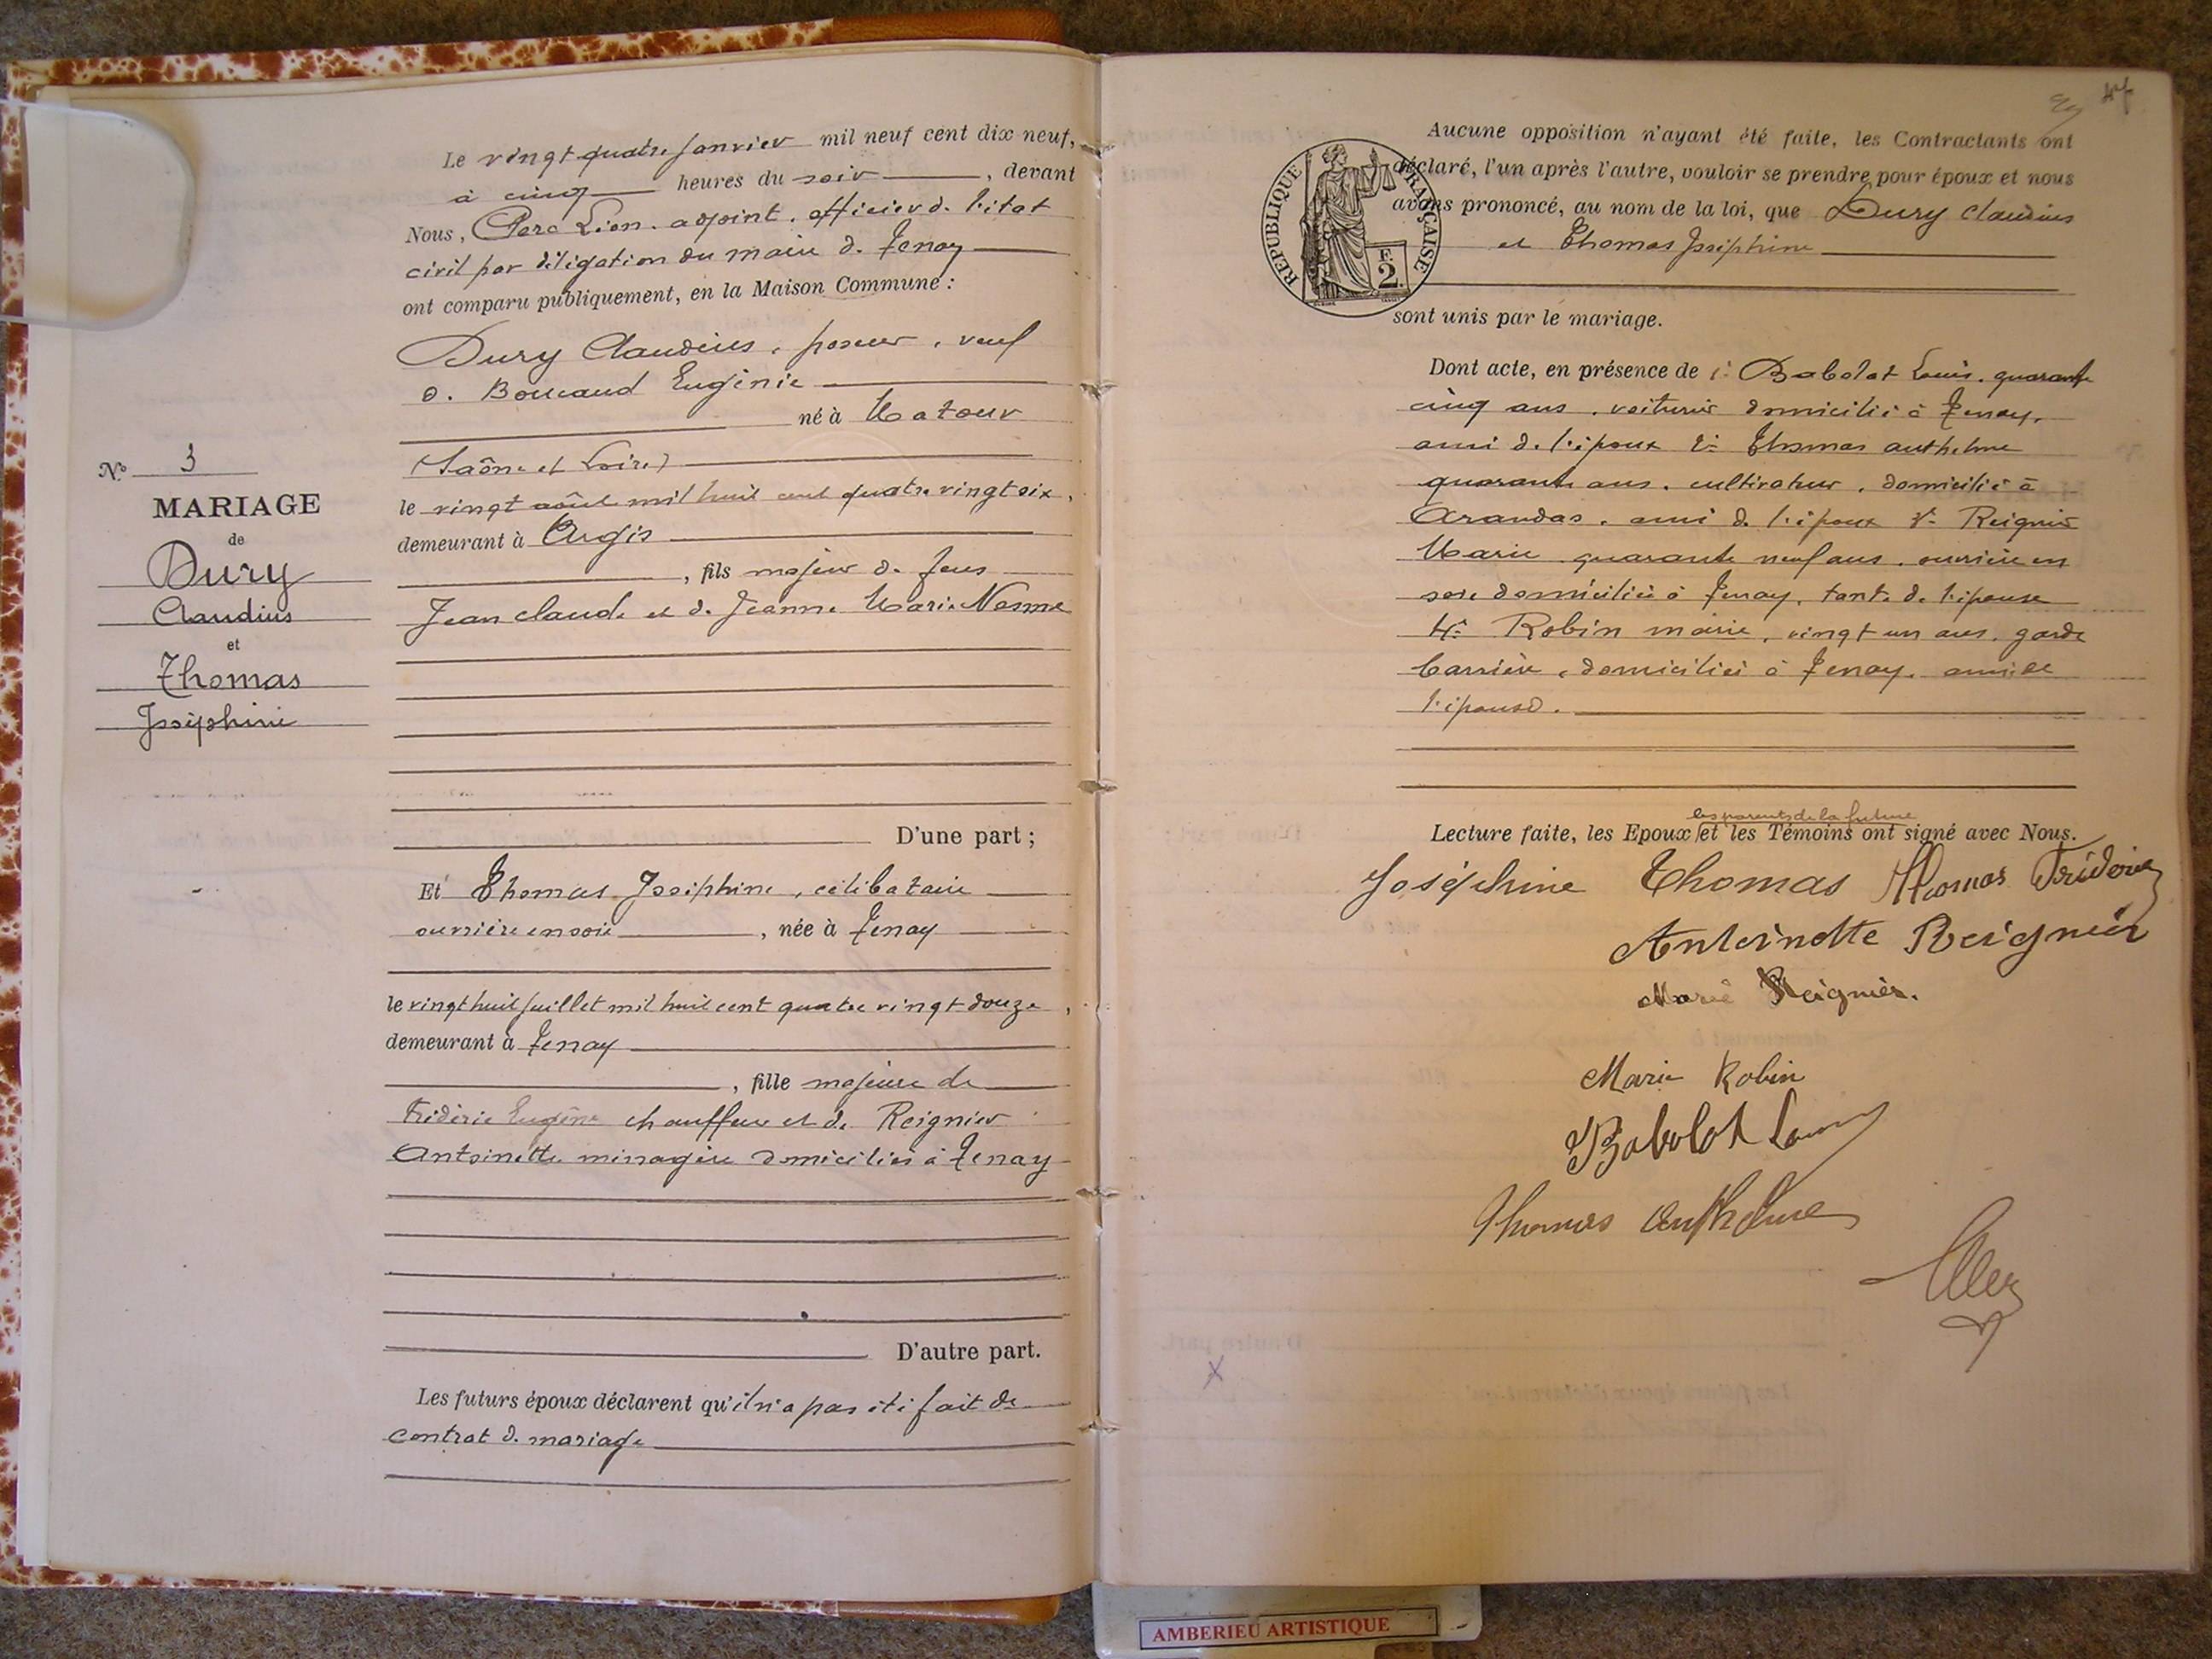 Le vingt quatre janvier mil neuf cent dix neuf,
à cinq heures du soir, devant
Nous, Léon adjoint, officier de l'état
civil par délégation du maire de Tenay
ont comparu publiquement, en la Maison Commune :
Dury Claudius, poseur, veuf
d. Boucaud Eugénie
né à Matour
(Saône et Loire)
le vingt août mil huit cent quatre vingt six,
demeurant à Argis
, fils majeur de feus
Jean claude et de Jeanne Marie Nesme
N° 3
MARIAGE
de
Dury
Claudius
et
Thomas
Joséphine
D'une part ;
Et Thomas Joséphine, célibataire
ouvrière en soie, née à Tenay
le vingt huit juillet mil huit cent quatre vingt douze,
demeurant à Tenay
, fille majeure de
Frédéric Eugène chauffeur et de Reignier
Antoinette ménagère domiciliés à Tenay
D'autre part.
Les futurs époux déclarent qu'il n'a pas été fait de
contrat de mariage
47
Aucune opposition n'ayant été faite, les Contractants ont
déclaré, l'un après l'autre, vouloir se prendre pour époux et nous
avons prononcé, au nom de la loi, que Dury claudius
et Thomas Joséphine
REPUBLIQUE FRANÇAISE
F.
2.
sont unis par le mariage.
Dont acte, en présence de 1° Babolat Louis, quarante
cinq ans, voiturier domicilié à Tenay,
ami de l'époux 2° Thomas anthelme
quarante ans, cultivateur, domicilié à
Arandas, ami de l'époux 3° Reignier
Marie quarante neuf ans, ouvrière en
soie domiciliée à Tenay, tante de l'épouse
4° Robin marie, vingt un ans, garde
barrière, domiciliée à Tenay, amie de
l'épouse.
les parents de la future
Lecture faite, les Epoux et les Témoins ont signé avec Nous.
Joséphine Thomas Thomas Frédéric
Antoinette Reignier
Marie Reignier.
Marie Robin
Babolat Louis
Thomas anthelme
D'autre part
X
AMBERIEU ARTISTIQUE